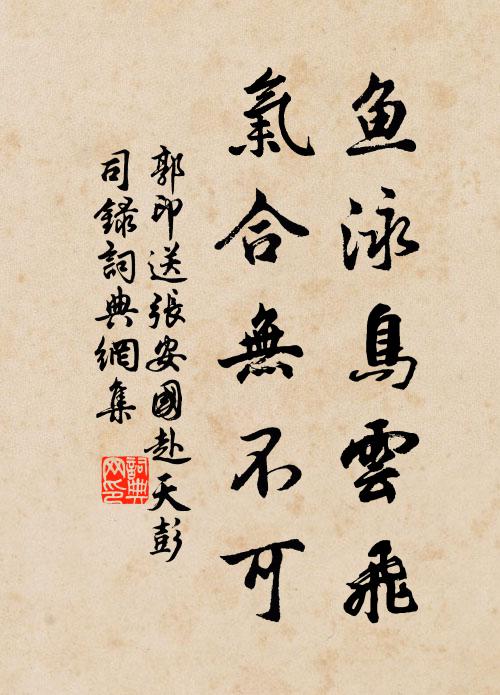 鱼泳鳥雲飛
氣合無不可
郭印送張安國赴天彭
司録詞典網集
詞典
网印